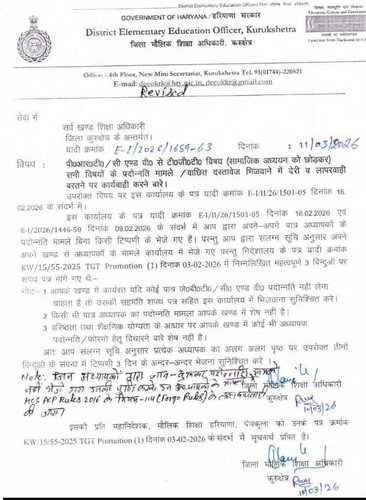 District Elementary Education Officer
GOVERNMENT OF HARYANA / हरियाणा सरकार
District Elementary Education Officer, Kurukshetra
जिला मौलिक शिक्षा अधिकारी, कुरुक्षेत्र
Office: - 4th Floor, New Mini Secretariat, Kurukshetra Tel. 91(01744)-220821
E-mail: deeokrk@hry.nic.in, deeokkr@gmail.com
Revised
सेवा में
सर्व खण्ड शिक्षा अधिकारी
जिला कुरुक्षेत्र के अन्तर्गत।
यादी क्रमांक E-I/2026/1659-63 दिनांक : 11/03/2026
विषय : पी0आर0टी0/ सी एण्ड वी0 से टी0जी0टी0 विषय (सामाजिक अध्ययन को छोड़कर)
सभी विषयों के पदोन्नति मामले /वांछित दस्तावेज भिजवाने में देरी व लापरवाही
बरतने पर कार्यवाही बारे।
उपरोक्त विषय पर इस कार्यालय के पत्र यादी क्रमांक E-I/II/26/1501-05 दिनांक 16.
02.2026 के संदर्भ में।
इस कार्यालय के पत्र यादी क्रमांक E-I-II/26/1501-05 दिनांक 16.02.2026 एवं
E-I/2026/1446-50 दिनांक 09.02.2026 के संदर्भ में आप द्वारा अपने-अपने पात्र अध्यापकों के
पदोन्नति मामले बिना किसी टिप्पणी के भेजे गए हैं। परन्तु आप द्वारा संलग्न सूचि अनुसार अपने
अपने खण्ड से अध्यापकों के मामले कार्यालय में भेजे गए परन्तु निदेशालय के पत्र यादी कमांक
KW/15/55-2025 TGT Promotion (1) दिनांक 03-02-2026 में निम्नलिखित महत्वपूर्ण 3 बिन्दुओं पर
शपथ पत्र मांगे गए थे:-
नोट:- 1 आपके खण्ड में कार्यरत यदि कोई पात्र जे0बी0टी0/ सी0 एण्ड वी0 पदोन्नति नहीं लेना
चाहता है तो उसकी सहमति शपथ पत्र सहित इस कार्यालय में भिजवाना सुनिश्चित करे ।
2 किसी भी पात्र अध्यापक का पदोन्नति मामला आपके खण्ड में शेष नहीं है।
3 वरिष्ठता तथा शैक्षणिक योग्यता के आधार पर आपके खण्ड में कोई भी अध्यापक
पदोन्नति/फोरगो हेतु विचारने बारे शेष नहीं है।
अतः आप संलग्न सूचि अनुसार प्रत्येक अध्यापक का अलग अलग पृष्ठ पर उपरोक्त तीनों
बिन्दुओं के संबन्ध में टिप्पणी 3 दिन के अन्दर-अन्दर भेजना सुनिश्चित करे ।
Note: जिन अध्यापकों द्वारा जान-बूझकर पदोन्नति मामला
नहीं भेजा
HCS ACP Rules 2016 के नियम (Forgo Rules) के
जिला मौलिक शिक्षा अधिकारी
कुरुक्षेत्र
10/03/26
इसकी प्रति महानिदेशक, मौलिक शिक्षा हरियाणा, पंचकूला को उनके पत्र क्रमांक
KW/15/55-2025 TGT Promotion (1) दिनांक 03-02-2026 के संदर्भ में सूचनार्थ प्रेषित है।
जिला मौलिक शिक्षा अधिकारी
कुरुक्षेत्र
10/03/26